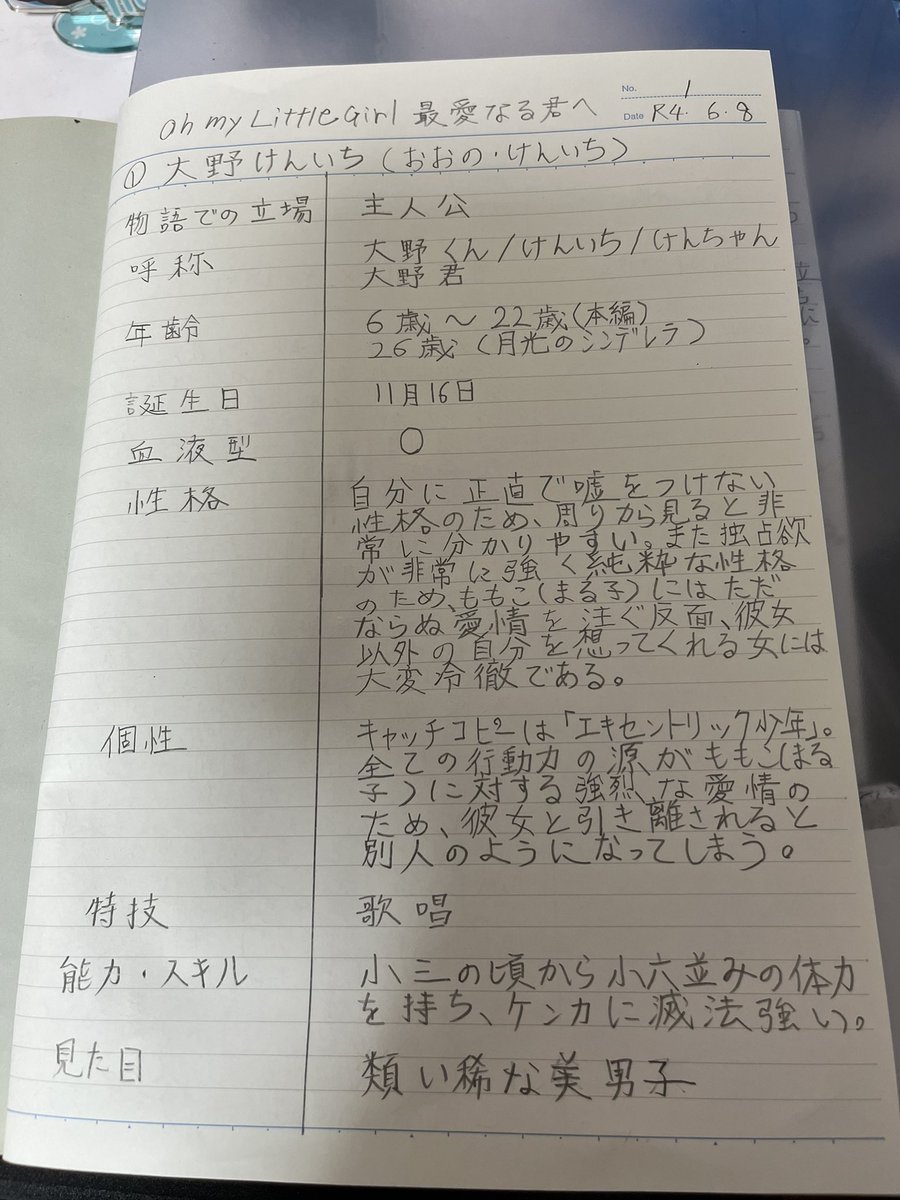 No. 1
Oh my Little Girl 最愛なる君へ
Date R4. 6. 8
① 大野けんいち（おおの・けんいち）
物語での立場 主人公
呼称 大野くん/けんいち/けんちゃん
大野君
年齢 6歳〜22歳（本編）
26歳（月光のシンデレラ）
誕生日 11月16日
血液型 O
性格 自分に正直で嘘をつけない
性格のため、周りから見ると非
常に分かりやすい。また独占欲
が非常に強く純粋な性格
のため、ももこ（まる子）にはただ
ならぬ愛情を注ぐ反面、彼女
以外の自分を想ってくれる女には
大変冷徹である。
個性 キャッチコピーは「エキセントリック少年」。
全ての行動力の源がももこ（まる
子）に対する強烈な愛情の
ため、彼女と引き離されると
別人のようになってしまう。
特技 歌唱
能力・スキル 小三の頃から小六並みの体力
を持ち、ケンカに滅法強い。
見た目 類い稀な美男子